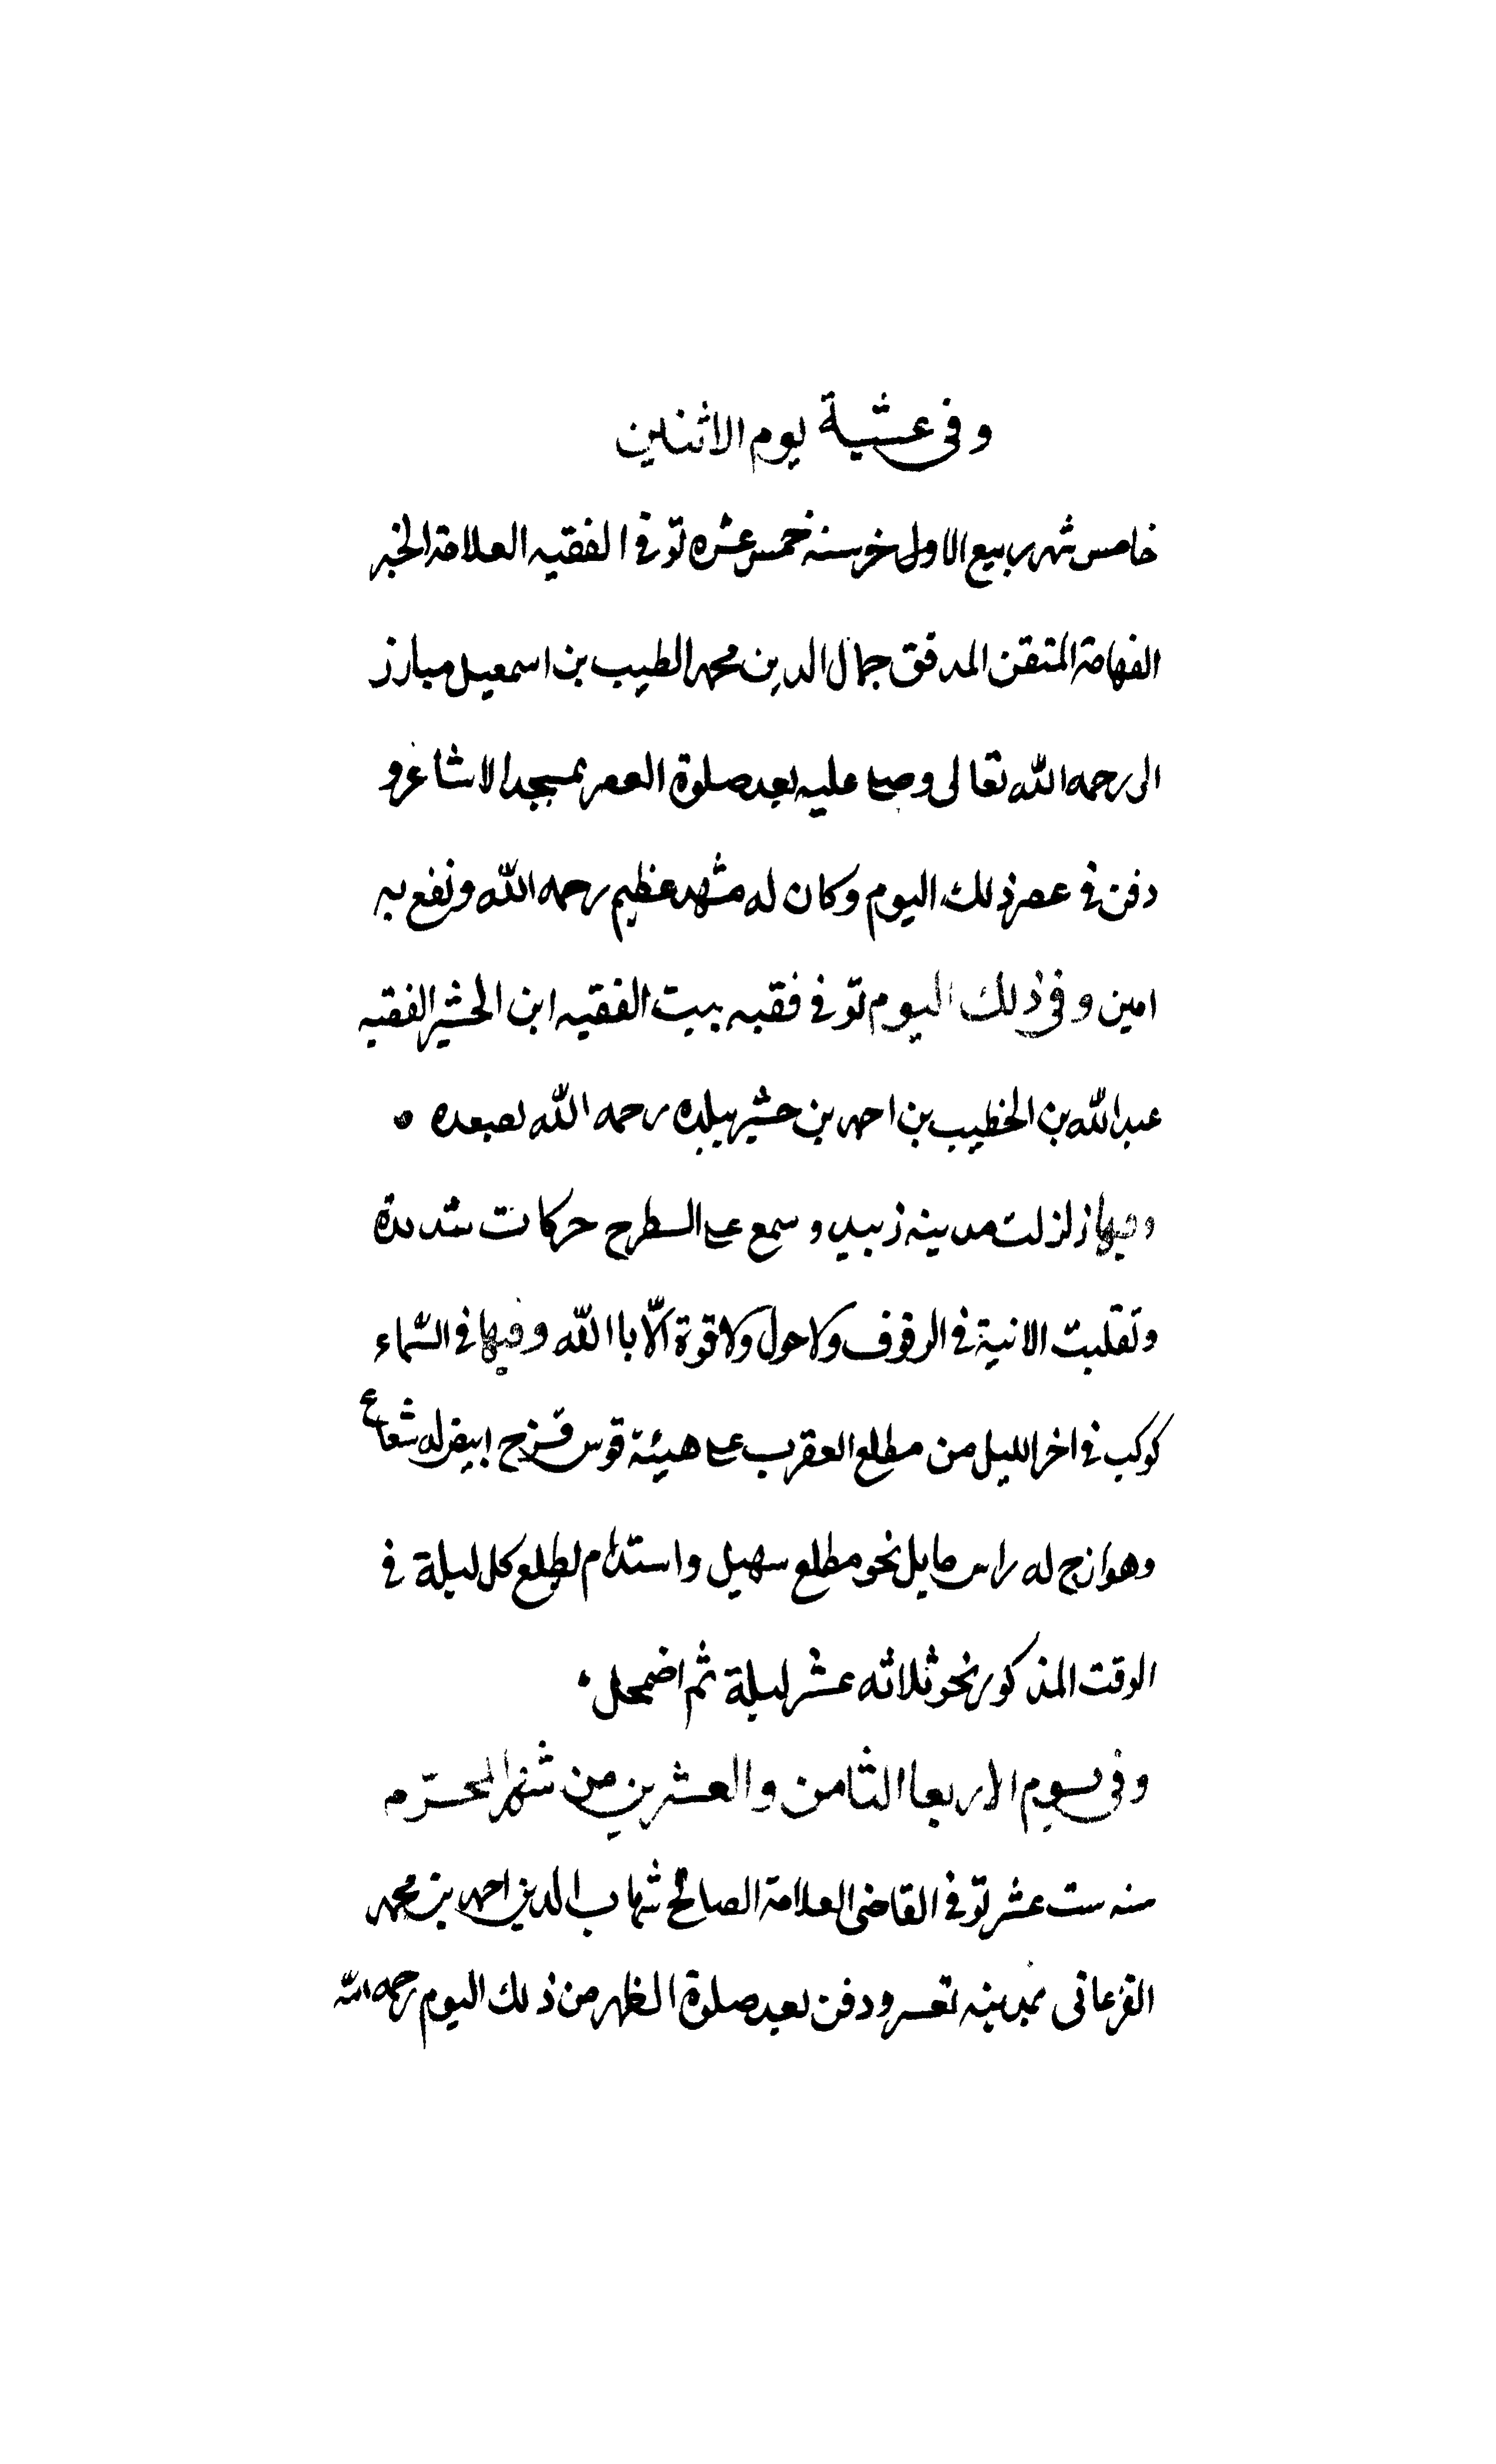 وفى عشية يوم الاثنين
خامس شهر ربيع الاول خر سنه خمس عشره توفي الفقيه العلامة الخبر
الفهامة المتقن المدقق جمال الدين محمد الطيب بن اسمعيل مبارز
الى رحمه الله تعالى وصلى عليه بعد صلوة العصر بمسجد الاشاعر و
دفن في عصر ذلك اليوم وكان له مشهد عظيم رحمه الله ونفع به
امين وفي ذلك اليوم توفي فقيه بيت الفقيه ابن الحشيبر الفقيه
عبد الله بن الخطيب بن احمد بن حشيبر ببلده رحمه الله
وفيها زلزلت مدينه زبيد وسمع على السطوح حركات شديدة
وتقلبت الانية في الرفوف ولا حول ولا قوة الّا با الله وفيها في السّماء
كوكب في اخر الليل من مطلع العقرب على هيئة قوس قزح ابيض له شعاع
وهو ازج له راس مايل نحو مطلع سهيل واستدام يطلع كل ليلة في
الوقت المذكور نحو ثلاثه عشر ليلة ثم اضمحل
وفى يوم الاربعا الثامن والعشرين من شهر المحرّم
سنه ست عشر توفي القاضى العلامة الصالح شهاب الدين احمد بن محمد
القرعانى بمدينه تعز ودفن بعد صلوة الظهر من ذلك اليوم رحمه الله